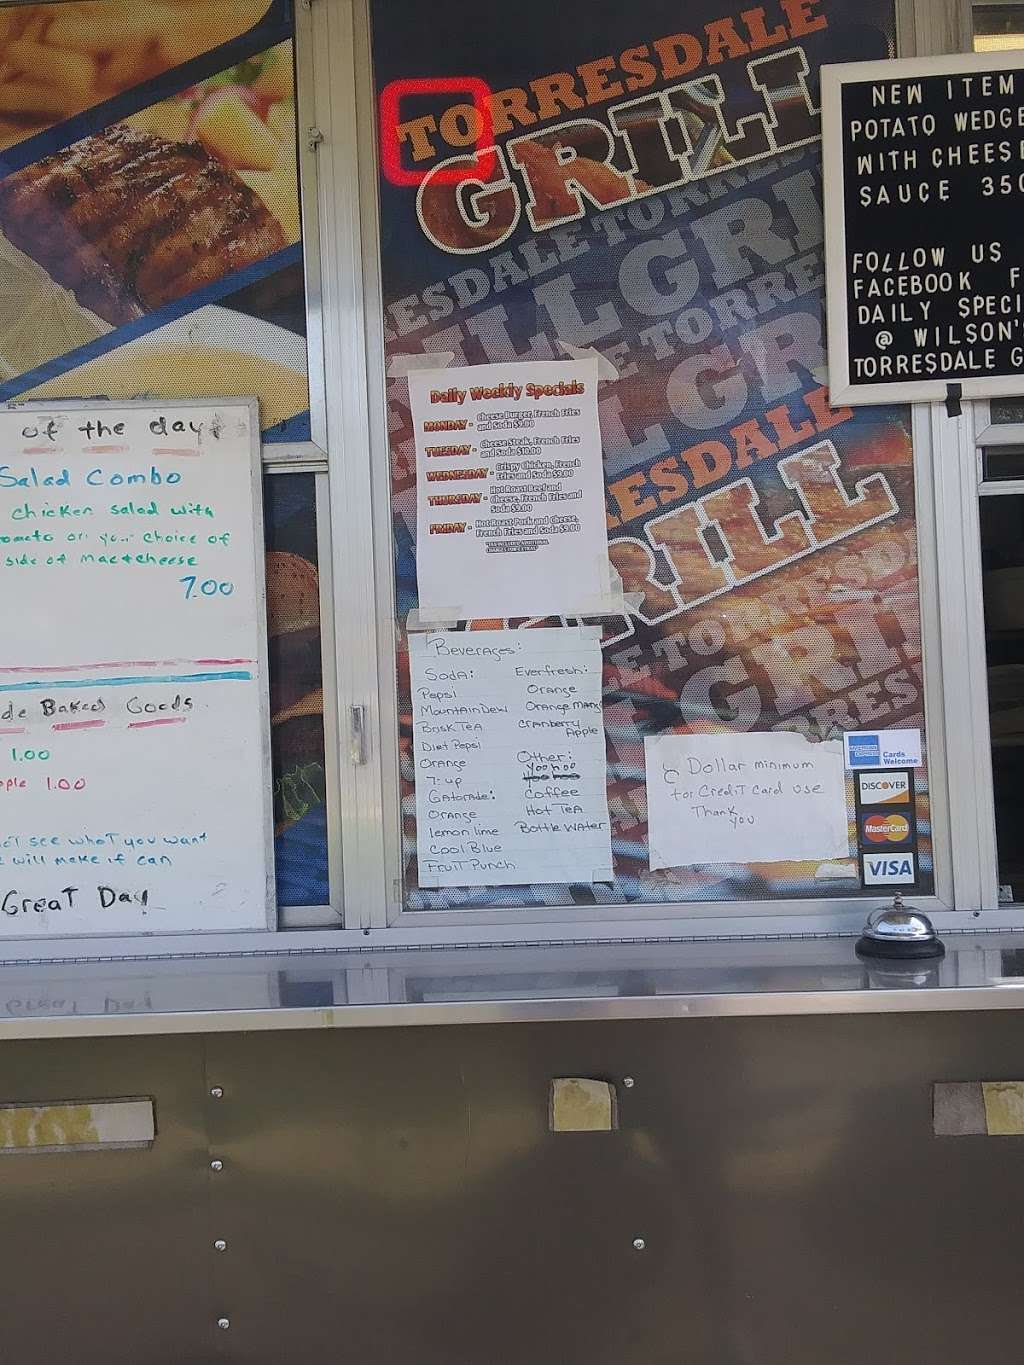 TORRESDALE
GRILL
NEW ITEM
POTATO WEDGE
WITH CHEESE
SAUCE 350
FOLLOW US
FACEBOOK F
DAILY SPECI
@ WILSON'
TORRESDALE G
Daily Weekly Specials
MONDAY - Cheese Burger, French Fries
and Soda $9.00
TUESDAY - Cheese Steak, French Fries
and Soda $10.00
WEDNESDAY - Crispy Chicken, French
Fries and Soda $9.00
THURSDAY - Hot Roast Beef and
Cheese, French Fries and
Soda $9.00
FRIDAY - Hot Roast Pork and Cheese,
French Fries and Soda $9.00
of the day
Salad Combo
chicken salad with
or your choice of
side of mac+cheese
7.00
Baked Goods
1.00
1.00
see what you want
will make if can
Great Day
Beverages:
Soda:
Pepsi
Mountain Dew
Brisk Tea
Diet Pepsi
Orange
7-up
Gatorade:
Orange
lemon lime
Cool Blue
Fruit Punch
Everfresh:
Orange
Orange Mang
Cranberry
Apple
Other:
Yoohoo
Coffee
Hot Tea
Bottle Water
Dollar minimum
for Credit Card use
Thank
you
AMERICAN EXPRESS
Cards
Welcome
DISCOVER
MasterCard
VISA
RESDALE
GRILL